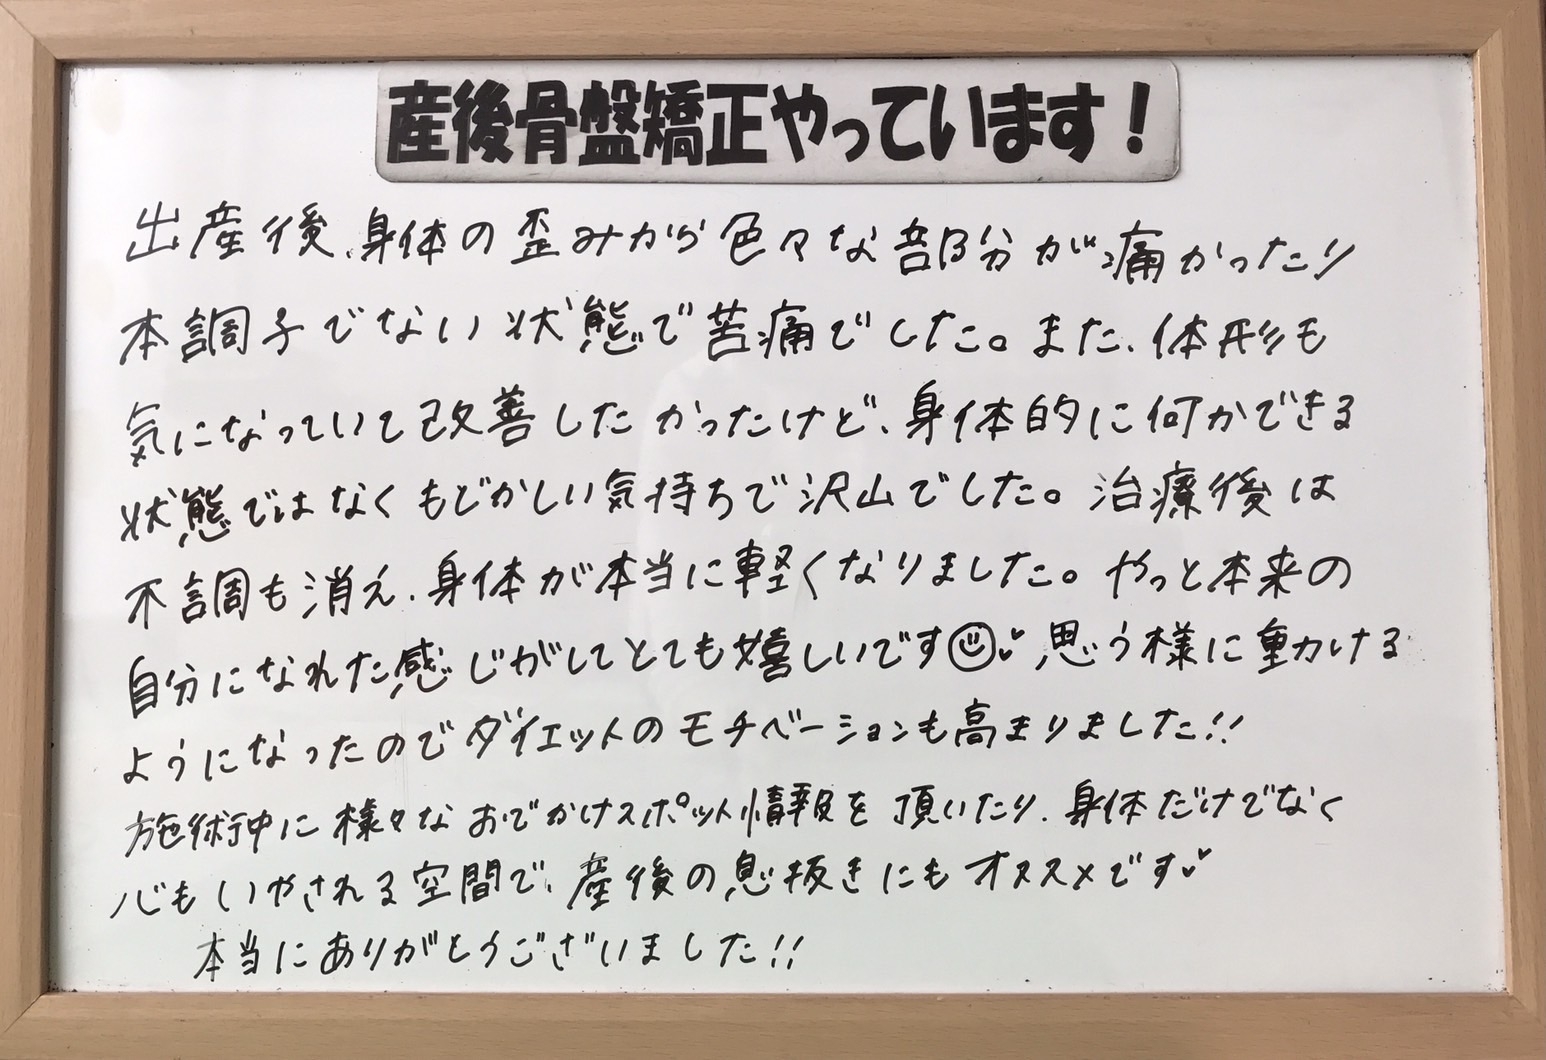 産後骨盤矯正やっています！
出産後、身体の歪みから色々な部分が痛かったり
本調子でない状態で苦痛でした。また、体形も
気になっていて改善したかったけど、身体的に何かできる
状態ではなくもどかしい気持ちで沢山でした。治療後は
不調も消え、身体が本当に軽くなりました。やっと本来の
自分になれた感じがしてとても嬉しいです☺♥思う様に動ける
ようになったのでダイエットのモチベーションも高まりました!!
施術中に様々なおでかけスポット情報を頂いたり、身体だけでなく
心もいやされる空間で、産後の息抜きにもオススメです♥
本当にありがとうございました!!